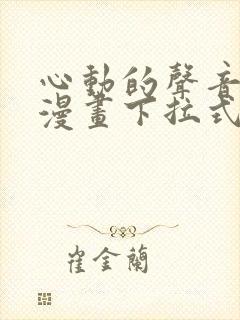 心動的聲音
漫畫下拉式
崔金蘭